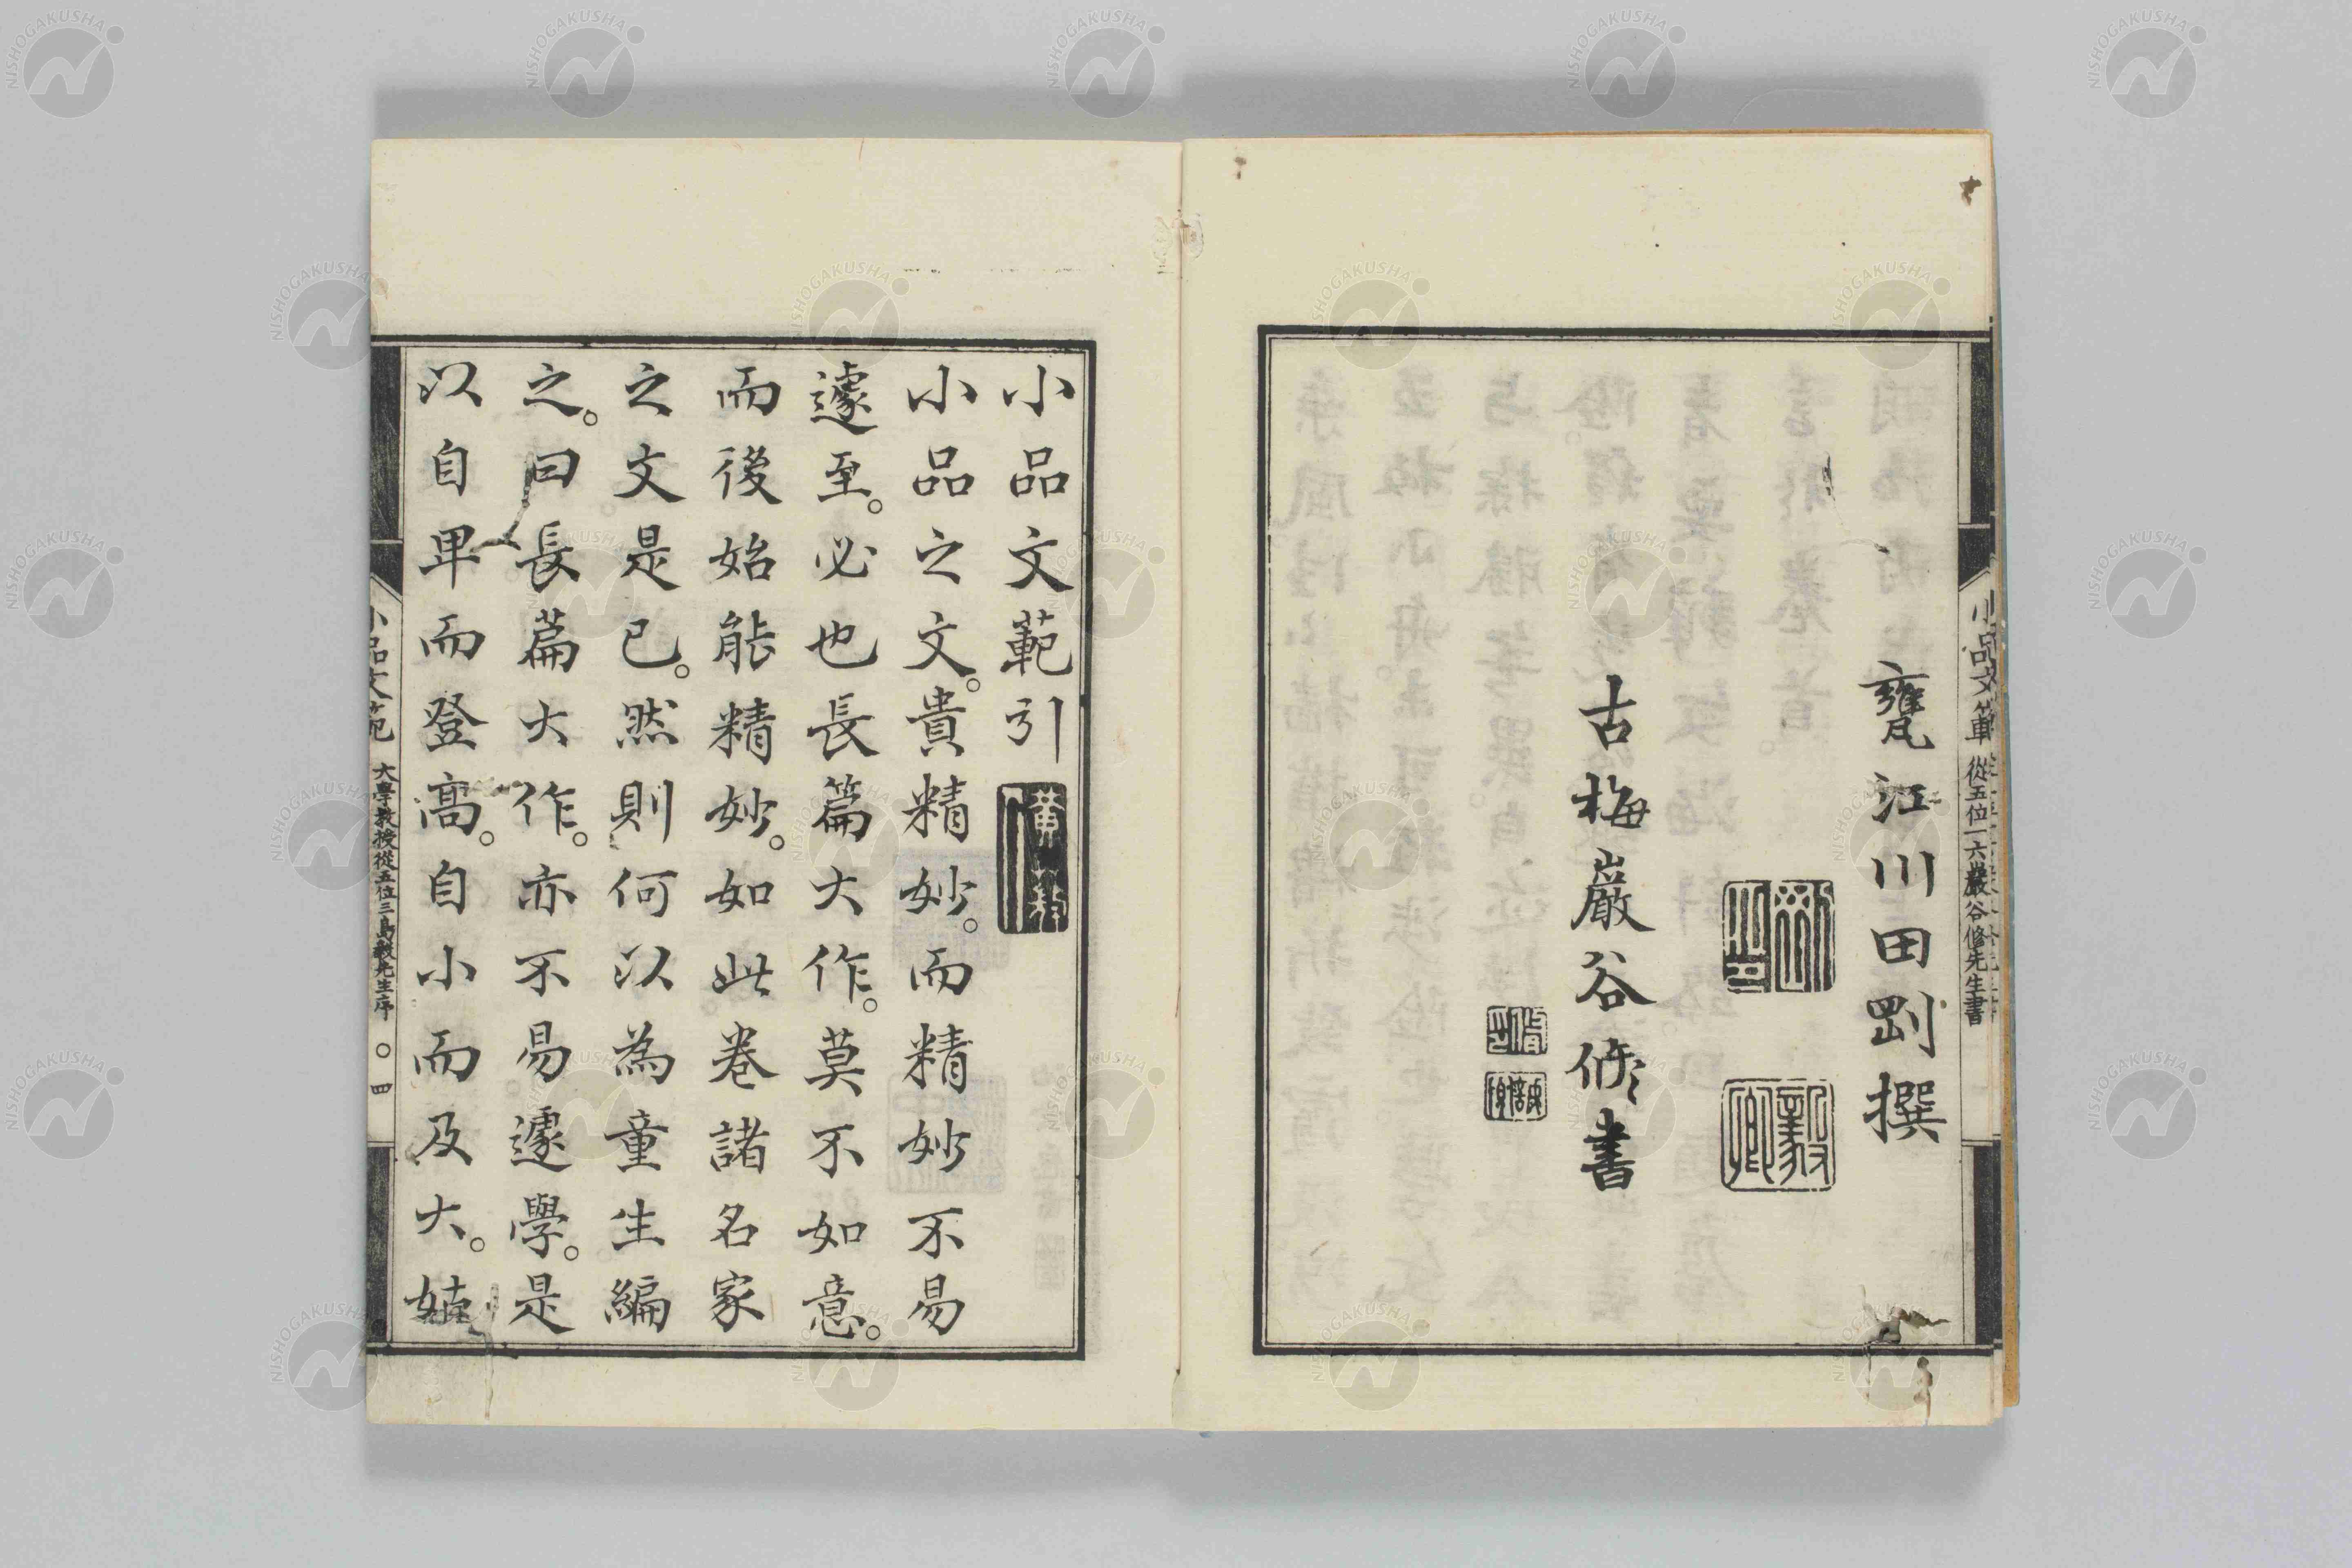 甕江川田剛撰
古梅巖谷修書
小品文範 從五位一六巖谷修先生書
小品文範引
小品之文。貴精妙。而精妙不易
遽至。必也長篇大作。莫不如意。
而後始能精妙。如此卷諸名家
之文是已。然則何以為童生編
之。曰長篇大作。亦不易遽學。是
以自卑而登高。自小而及大。姑
小品文範 大學教授從五位三島毅先生序 〇四
NISHOGAKUSHA